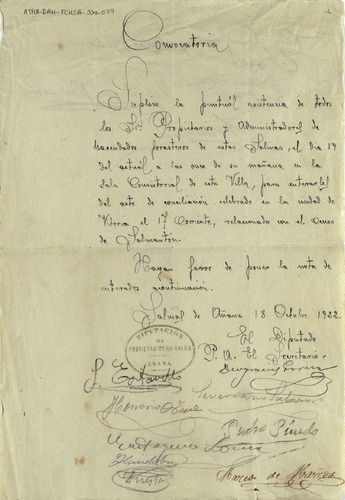 ATHA-DAH-FCHSA-004-079
Convocatoria
Suplico la puntual asistencia de todos
los Srs Propietarios y Administradores de
hacendados forasteros de estas Salinas, el dia 19
del actual a las once de su mañana en la
Sala Consistorial de esta Villa, para enterarles
del acto de conciliación celebrado en la ciudad
de Vitoria el 17 Corriente, relacionado con el Censo
de Salmantón.
Hagan favor de poner la nota de
enterados acontinuación.
Salinas de Añana 18 Octubre 1922.
El Diputado
P. O. El Secretario
DIPUTACION
DE
PROPIETARIOS DE SALES
AÑANA
Honorio
Pedro Pinedo